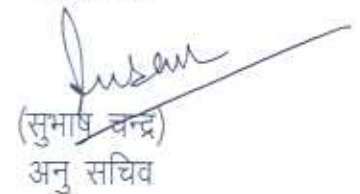 (सुभाष चन्द्र)
अनु सचिव